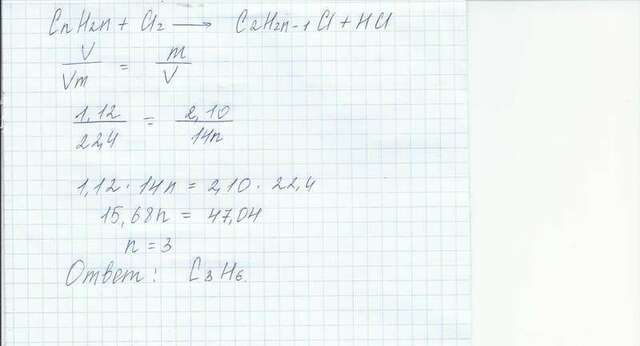 CnH2n + Cl2 → C2H2n-1Cl + HCl
V/Vm = m/V
1,12/22,4 = 2,10/14n
1,12 · 14n = 2,10 · 22,4
15,68n = 47,04
n = 3
Ответ: C3H6.